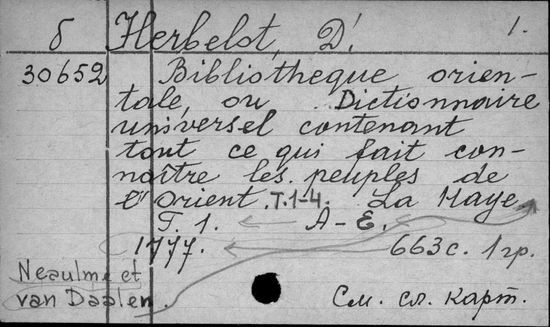 б Herbelot, D'. 1.
30652 Bibliotheque orien-
tale, ou Dictionnaire
universel contenant
tout ce qui fait con-
naître les peuples de
l'Orient. T.1-4. La Haye
T. 1. A-E.
1777. 663 с. 1 гр.
Neaulme et
van Daalen.
См. сл. карт.